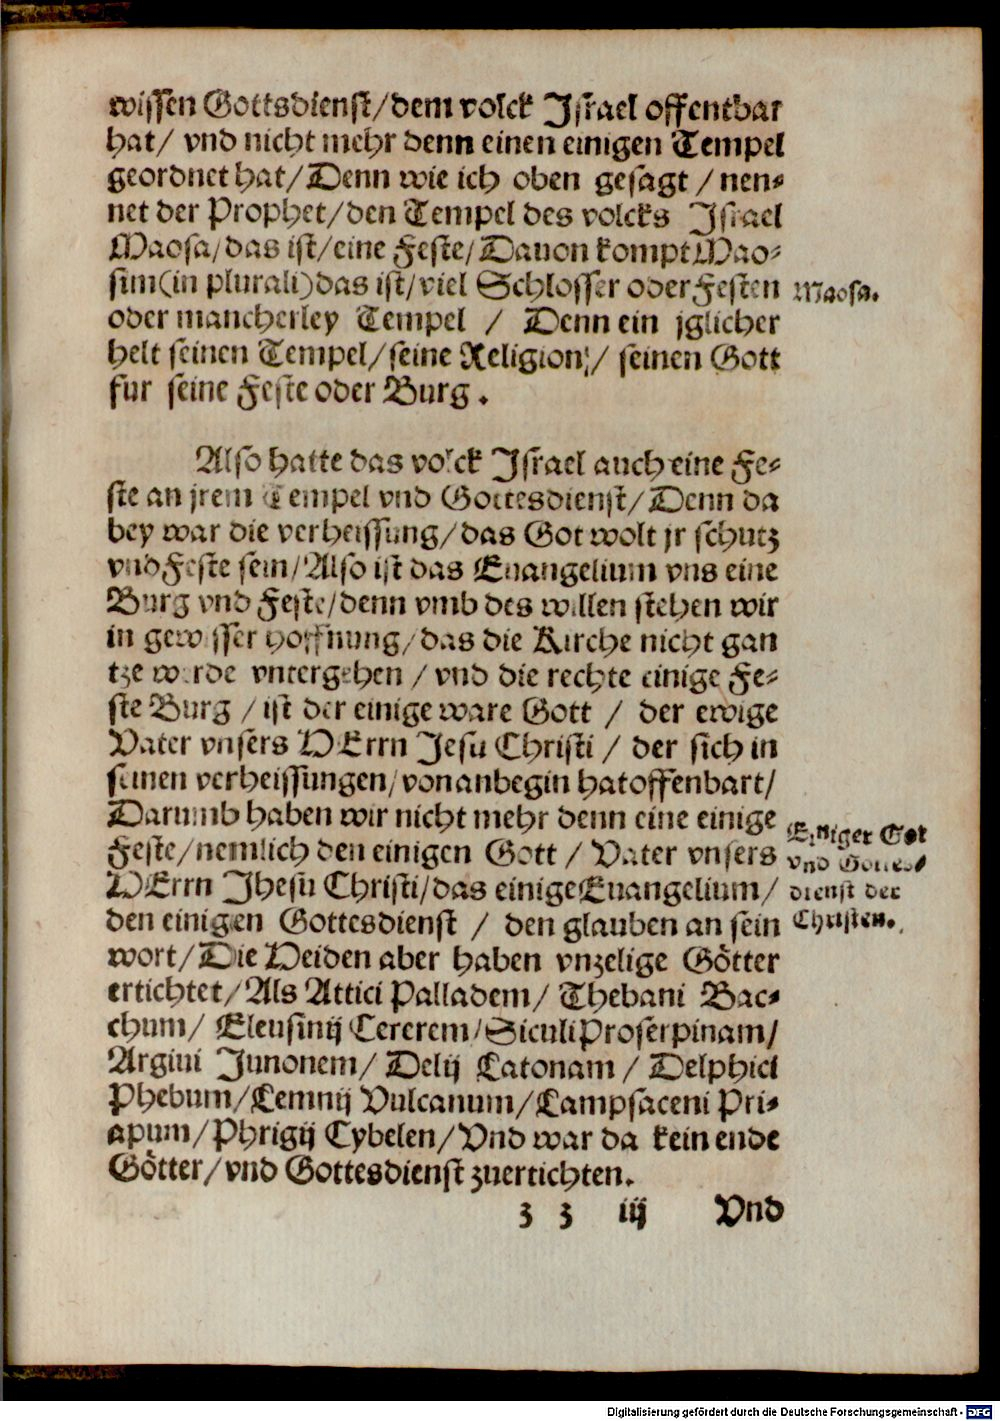 wissen Gottsdienst/dem volck Israel offentbar
hat/ vnd nicht mehr denn einen einigen Tempel
geordnet hat/Denn wie ich oben gesagt / nen⸗
net der Prophet/den Tempel des volcks Israel
Maosa/das ist/eine Feste/Dauon kompt Mao⸗
sim(in plurali)das ist/viel Schlosser oder Festen
Maosa.
oder mancherley Tempel / Denn ein jglicher
helt seinen Tempel/seine Religion/ seinen Gott
fur seine Feste oder Burg.
Also hatte das volck Israel auch eine Fe⸗
ste an jrem Tempel vnd Gottesdienst/Denn da
bey war die verheissung/das Got wolt jr schutz
vnd Feste sein/Also ist das Euangelium vns eine
Burg vnd Feste/denn vmb des willen stehen wir
in gewisser hoffnung/das die Kirche nicht gan
tze werde vntergehen / vnd die rechte einige Fe⸗
ste Burg / ist der einige ware Gott / der ewige
Vater vnsers HErrn Jesu Christi / der sich in
seinen verheissungen/von anbegin hat offenbart/
Darumb haben wir nicht mehr denn eine einige
Feste/nemlich den einigen Gott / Vater vnsers
HErrn Jhesu Christi/das einige Euangelium/
den einigen Gottesdienst / den glauben an sein
Einiger Got
vnd Gottes⸗
dienst der
Christen.
wort/Die Heiden aber haben vnzelige Götter
ertichtet/Als Attici Palladem/ Thebani Bac⸗
chum/ Eleusinij Cererem/Siculi Proserpinam/
Argiui Junonem/ Delij Latonam / Delphici
Phebum/Lemnij Vulcanum/Lampsaceni Pri⸗
apum/Phrigij Cybelen/Vnd war da kein ende
Götter/vnd Gottesdienst zuertichten.
z z iij Vnd
Digitalisierung gefördert durch die Deutsche Forschungsgemeinschaft - DFG